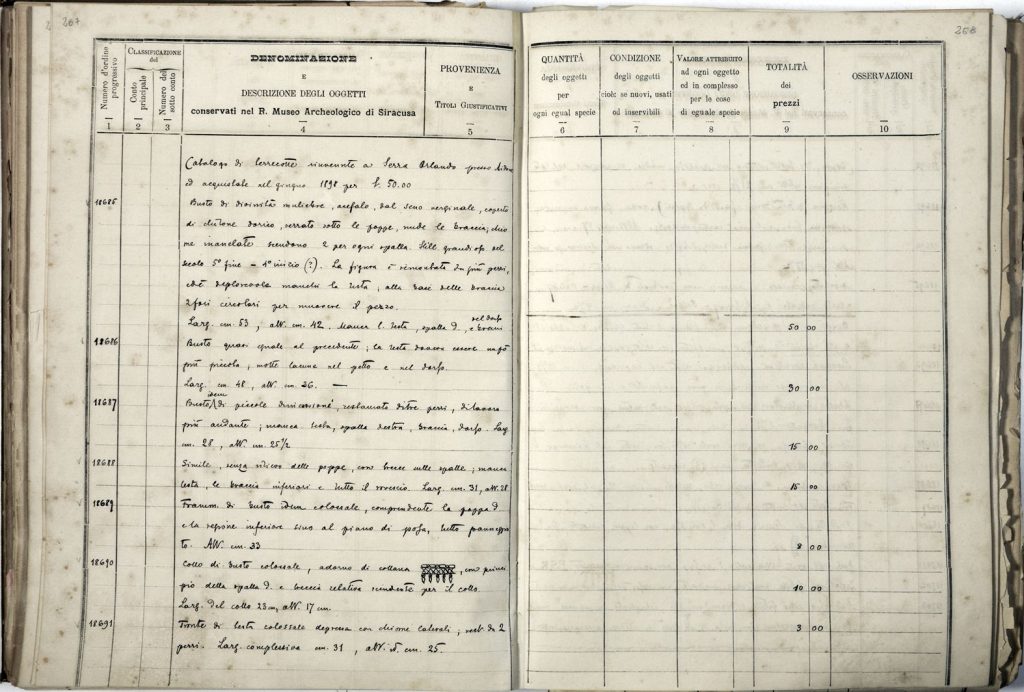 267
Numero d'ordine progressivo
CLASSIFICAZIONE del
Conto principale
Numero del sotto conto
DENOMINAZIONE
E
DESCRIZIONE DEGLI OGGETTI
conservati nel R. Museo Archeologico di Siracusa
PROVENIENZA
E
TITOLI GIUSTIFICATIVI
1 2 3 4 5
Catalogo di terrecotte rinvenute a Serra Orlando presso Aidone
ed acquistate nel giugno 1898 per £. 50.00
18685 Busto di divinità muliebre, acefalo, dal seno verginale, coperto
di chitone dorico, serrato sotto le poppe, nude le braccia; chio
me manelate scendono 2 per ogni spalla. Still. grandioso del
secolo 5° fine - 4° inizio (?). La figura è rimontata da più pezzi,
ed è deplorevole manchi la testa; alla base delle braccia
2 fori circolari per muovere il pezzo.
Larg. cm. 53, alt. cm. 42. Manca l. testa, spalla d. e braccia nel dorso
18686 Busto quasi eguale al precedente; la testa doveva essere un po'
più piccola, molte lacune nel petto e nel dorso.
Larg. cm. 48, alt. cm. 36. —
18687 Busto idem di piccole dimensioni, restaurato di tre pezzi, di lavoro
più andante; manca testa, spalla destra, braccia, dorso. Larg
cm. 28, alt. cm. 25 1/2
18688 Simile, senza rilievo delle poppe, con trecce sulle spalle; manca
testa, le braccia inferiori e tutto il rovescio. Larg. cm. 31, alt. 28
18689 Framm. di busto idem colossale, comprendente la poppa d
e la regione inferiore sino al piano di posa, tutto panneggia
to. Alt. cm. 33
18690 Collo di busto colossale, adorno di collana, con princi
pio della spalla d. e treccia relativa scendente per il collo.
Larg. del collo 23 cm, alt. 17 cm.
18691 Fronte di testa colossale depressa con chiome laterali; rest. da 2
pezzi. Larg. complessiva cm. 31, alt. d. cm. 25.
268
QUANTITÀ
degli oggetti
per
ogni egual specie
CONDIZIONE
degli oggetti
cioè: se nuovi, usati
od inservibili
VALORE ATTRIBUITO
ad ogni oggetto
ed in complesso
per le cose
di eguale specie
TOTALITÀ
dei
prezzi
OSSERVAZIONI
6 7 8 9 10
50 00
30 00
15 00
15 00
8 00
10 00
3 00